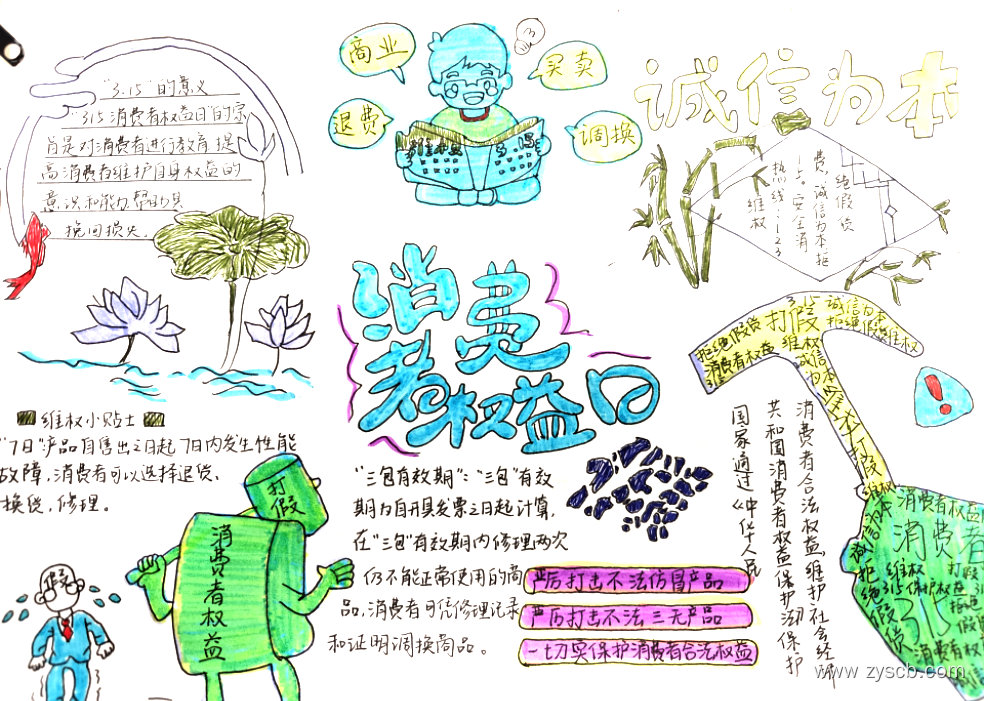 "3.15"的意义
"315消费者权益日"的宗
旨是对消费者进行教育,提
高消费者维护自身权益的
意识和能力,帮助其
挽回损失。
商业
买卖
退费
调换
3
诚信为本
维权
热线:123
15。安全消
费,诚信为本,拒
绝假货
消费
者权益日
维权小贴士
"7日"产品自售出之日起7日内发生性能
故障,消费者可以选择退货、
换货,修理。
打假
消费者权益
假
"三包有效期":"三包"有效
期为自开具发票之日起计算,
在"三包"有效期内修理两次
仍不能正常使用的商
品,消费者可凭修理记录
和证明调换商品。
严厉打击不法仿冒产品
严厉打击不法三无产品
一切实保护消费者合法权益
国家通过《中华人民
共和国消费者权益保护法》保护
消费者合法权益,维护社会经济
拒绝假货
消费者权益
315
3.15
打假
维权
诚信
为本
诚信为本
拒绝假货维权
打假
维权
诚信为本
拒绝
假货
消费者权益
消费者
维权
315保护权益
打假
消费者权益
www.zyscb.com